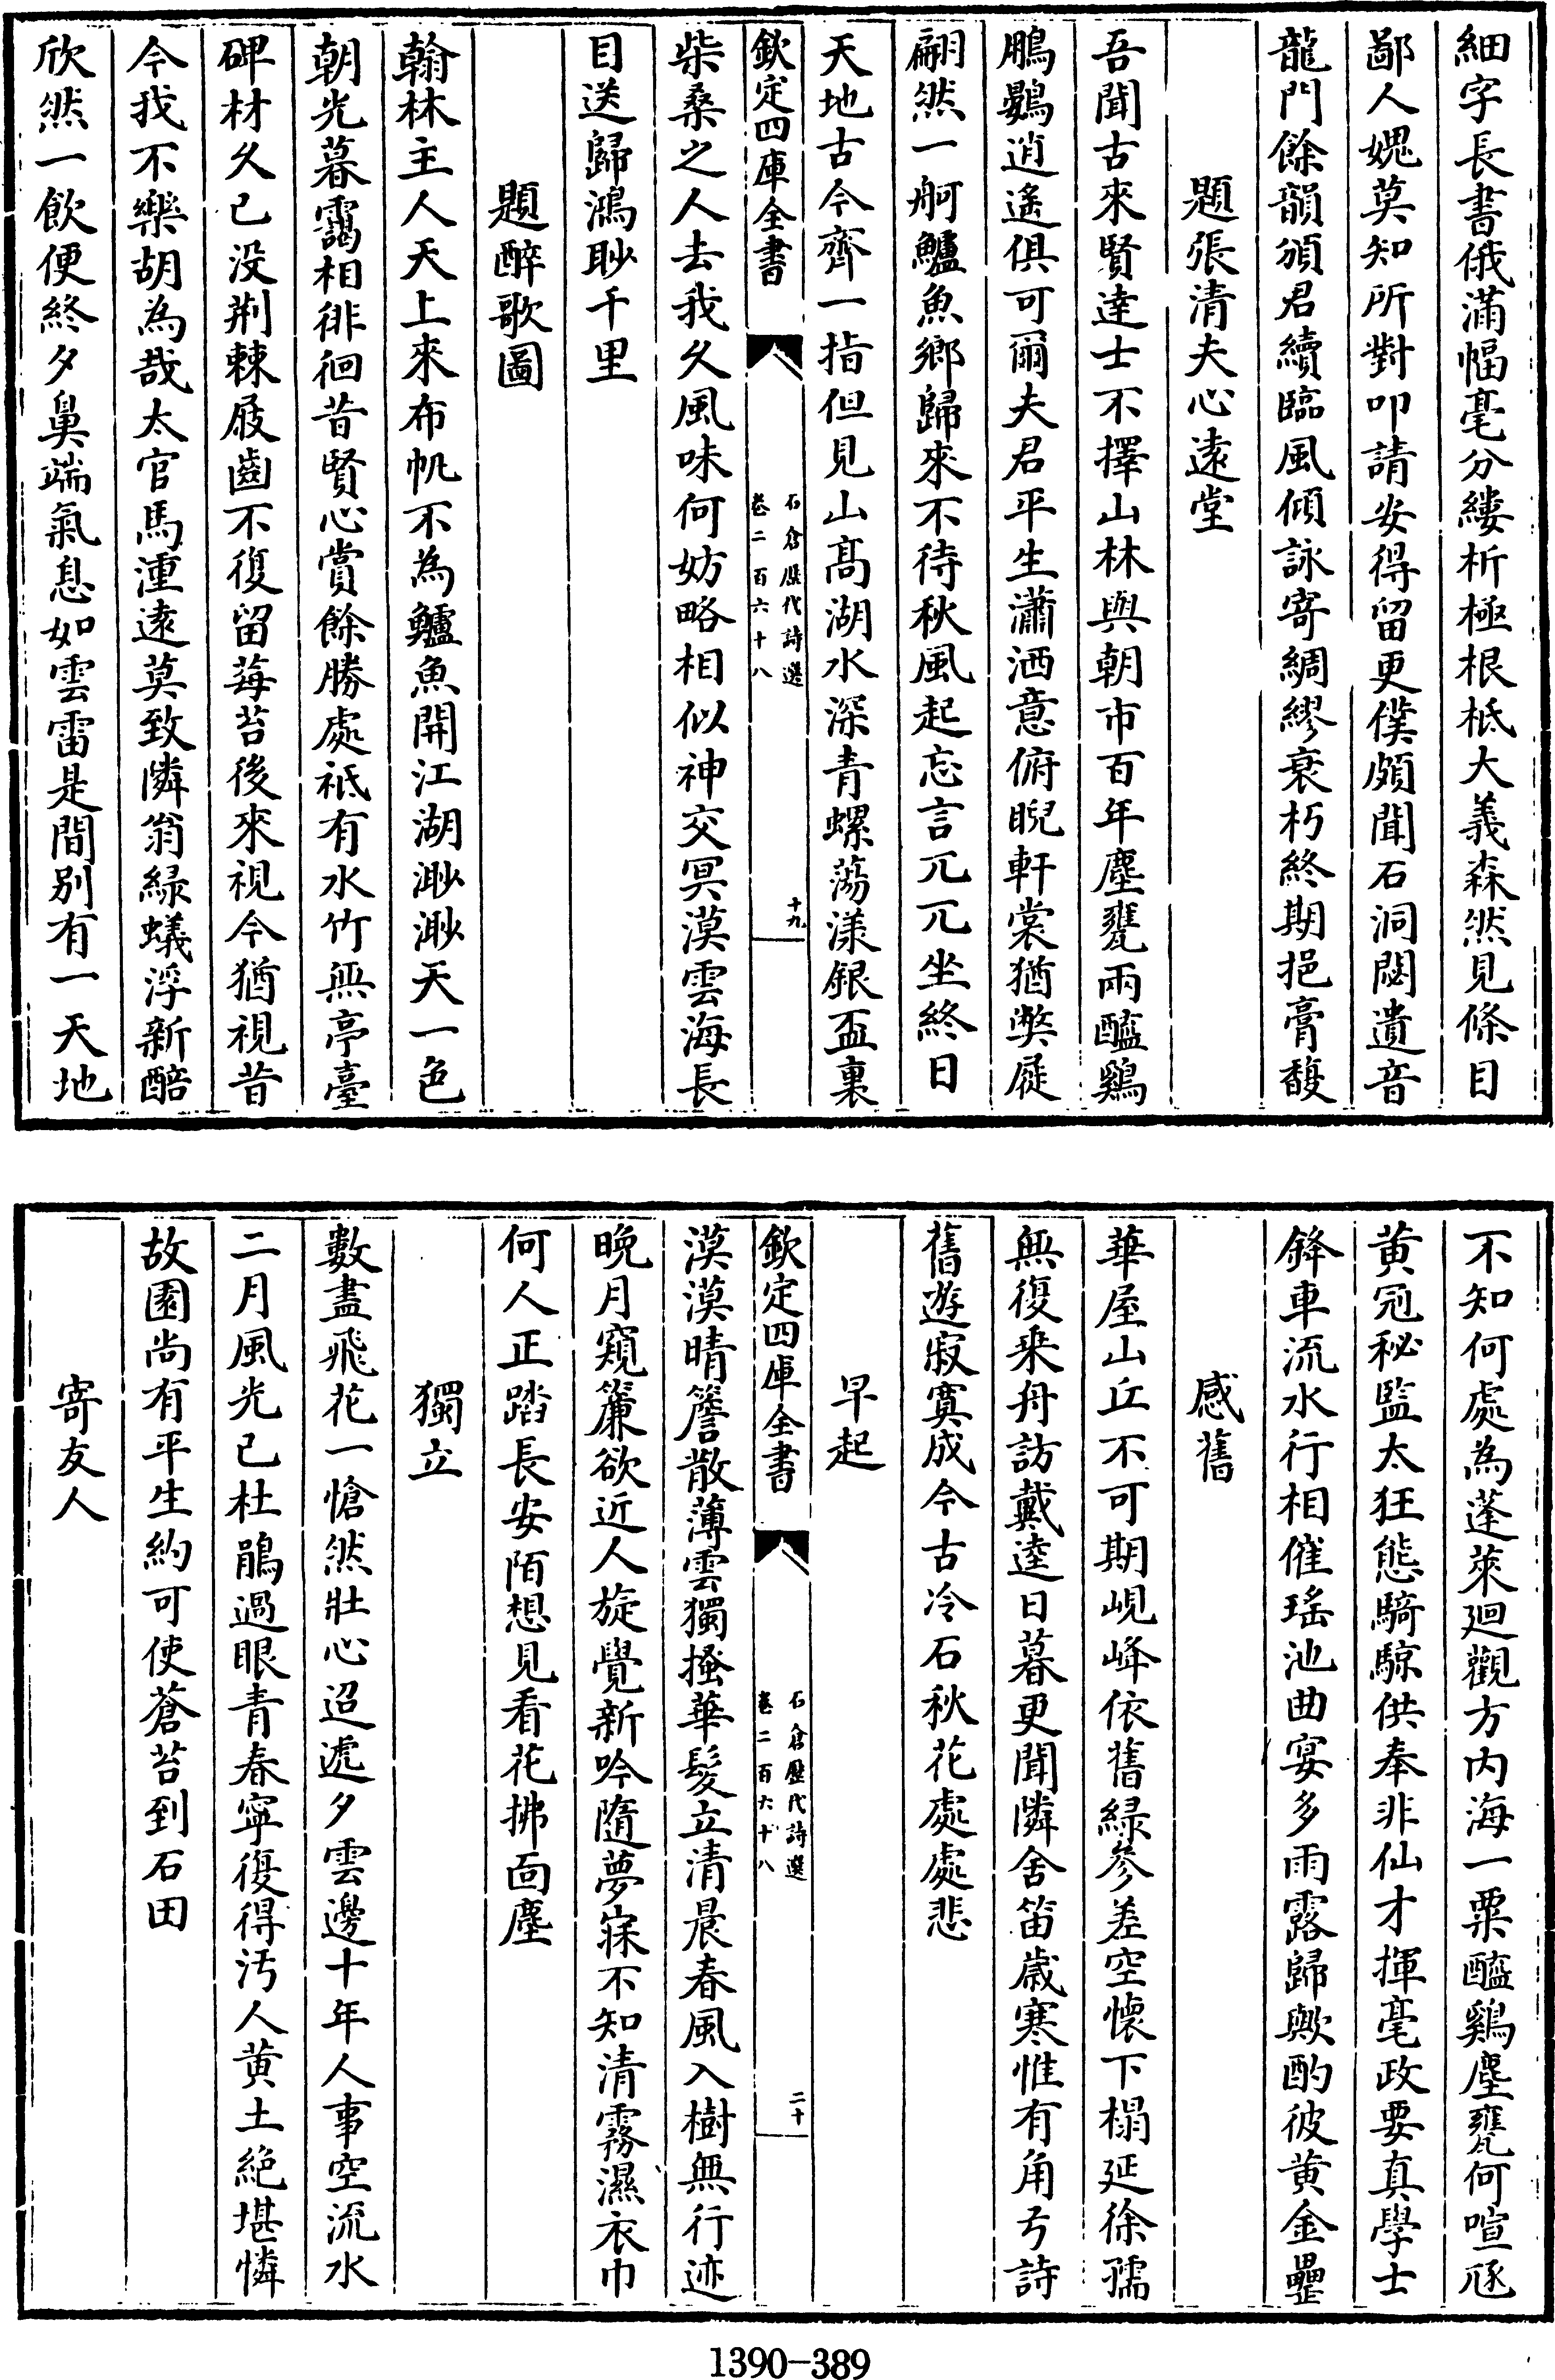 細字長書俄滿幅毫分縷析極根柢大義森然見條目
鄙人媿莫知所對叩請安得留更僕頗聞石洞閟遺音
龍門餘韻頒君續臨風傾詠寄綢繆衰朽終期挹膏馥
題張清夫心遠堂
吾聞古來賢達士不擇山林與朝市百年塵甕兩醯鷄
鵬鷃逍遙俱可爾夫君平生瀟洒意俯睨軒裳猶獘屣
翩然一舸鱸魚鄉歸來不待秋風起忘言兀兀坐終日
天地古今齊一指但見山髙湖水深青螺蕩漾銀盃裏
欽定四庫全書
石倉歷代詩選
卷二百六十八
十九
柴桑之人去我久風味何妨略相似神交冥漠雲海長
目送歸鴻眇千里
題醉歌圖
翰林主人天上來布帆不為鱸魚開江湖渺渺天一色
朝光暮靄相徘徊昔賢心賞餘勝處祗有水竹無亭臺
碑材久已没荆棘屐齒不復留莓苔後來視今猶視昔
今我不樂胡為哉太官馬湩遠莫致隣翁緑蟻浮新醅
欣然一飲便終夕鼻端氣息如雲雷是間别有一天地
不知何處為蓬萊廻觀方内海一粟醯鷄塵甕何喧豗
黄冠秘監太狂態騎鯨供奉非仙才揮毫政要真學士
鋒車流水行相催瑤池曲宴多雨露歸歟酌彼黄金罍
感舊
華屋山丘不可期峴峰依舊緑參差空懷下榻延徐孺
無復乗舟訪戴逵日暮更聞隣舍笛歲寒惟有角弓詩
舊遊寂寞成今古冷石秋花處處悲
早起
欽定四庫全書
石倉歷代詩選
卷二百六十八
二十
漠漠晴簷散薄雲獨搔華髮立清晨春風入樹無行迹
晩月窺簾欲近人旋覺新吟隨夢寐不知清霧濕衣巾
何人正踏長安陌想見看花拂面塵
獨立
數盡飛花一愴然壯心迢遞夕雲邊十年人事空流水
二月風光已杜鵑過眼青春寧復得汚人黄土絶堪憐
故園尚有平生約可使蒼苔到石田
寄友人
1390-389